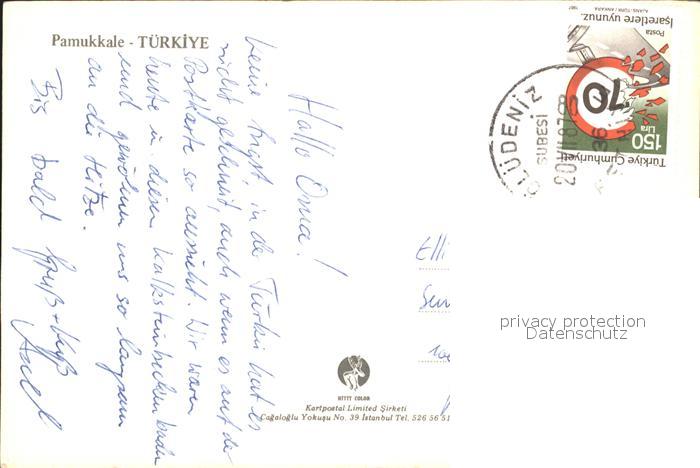 Pamukkale - TÜRKİYE
Hallo Oma!
keine Angst, in der Türkei hat es
nicht geschneit, auch wenn es auf der
Postkarte so aussieht. Wir waren
heute in diesen Kalksteinbecken baden
und gewöhnen uns so langsam
an die Hitze.
Bis bald Gruß + Kuß
Axel
Elli
HITIT COLOR
Kartpostal Limited Şirketi
Cağaloğlu Yokuşu No. 39 İstanbul Tel. 526 56 51
İşaretlere uyunuz.
Posta
AJANS-TÜRK / ANKARA 1987
70
150
Lira
Türkiye Cumhuriyeti
ÖLÜDENİZ
ŞUBESİ
20 VII 87
privacy protection
Datenschutz